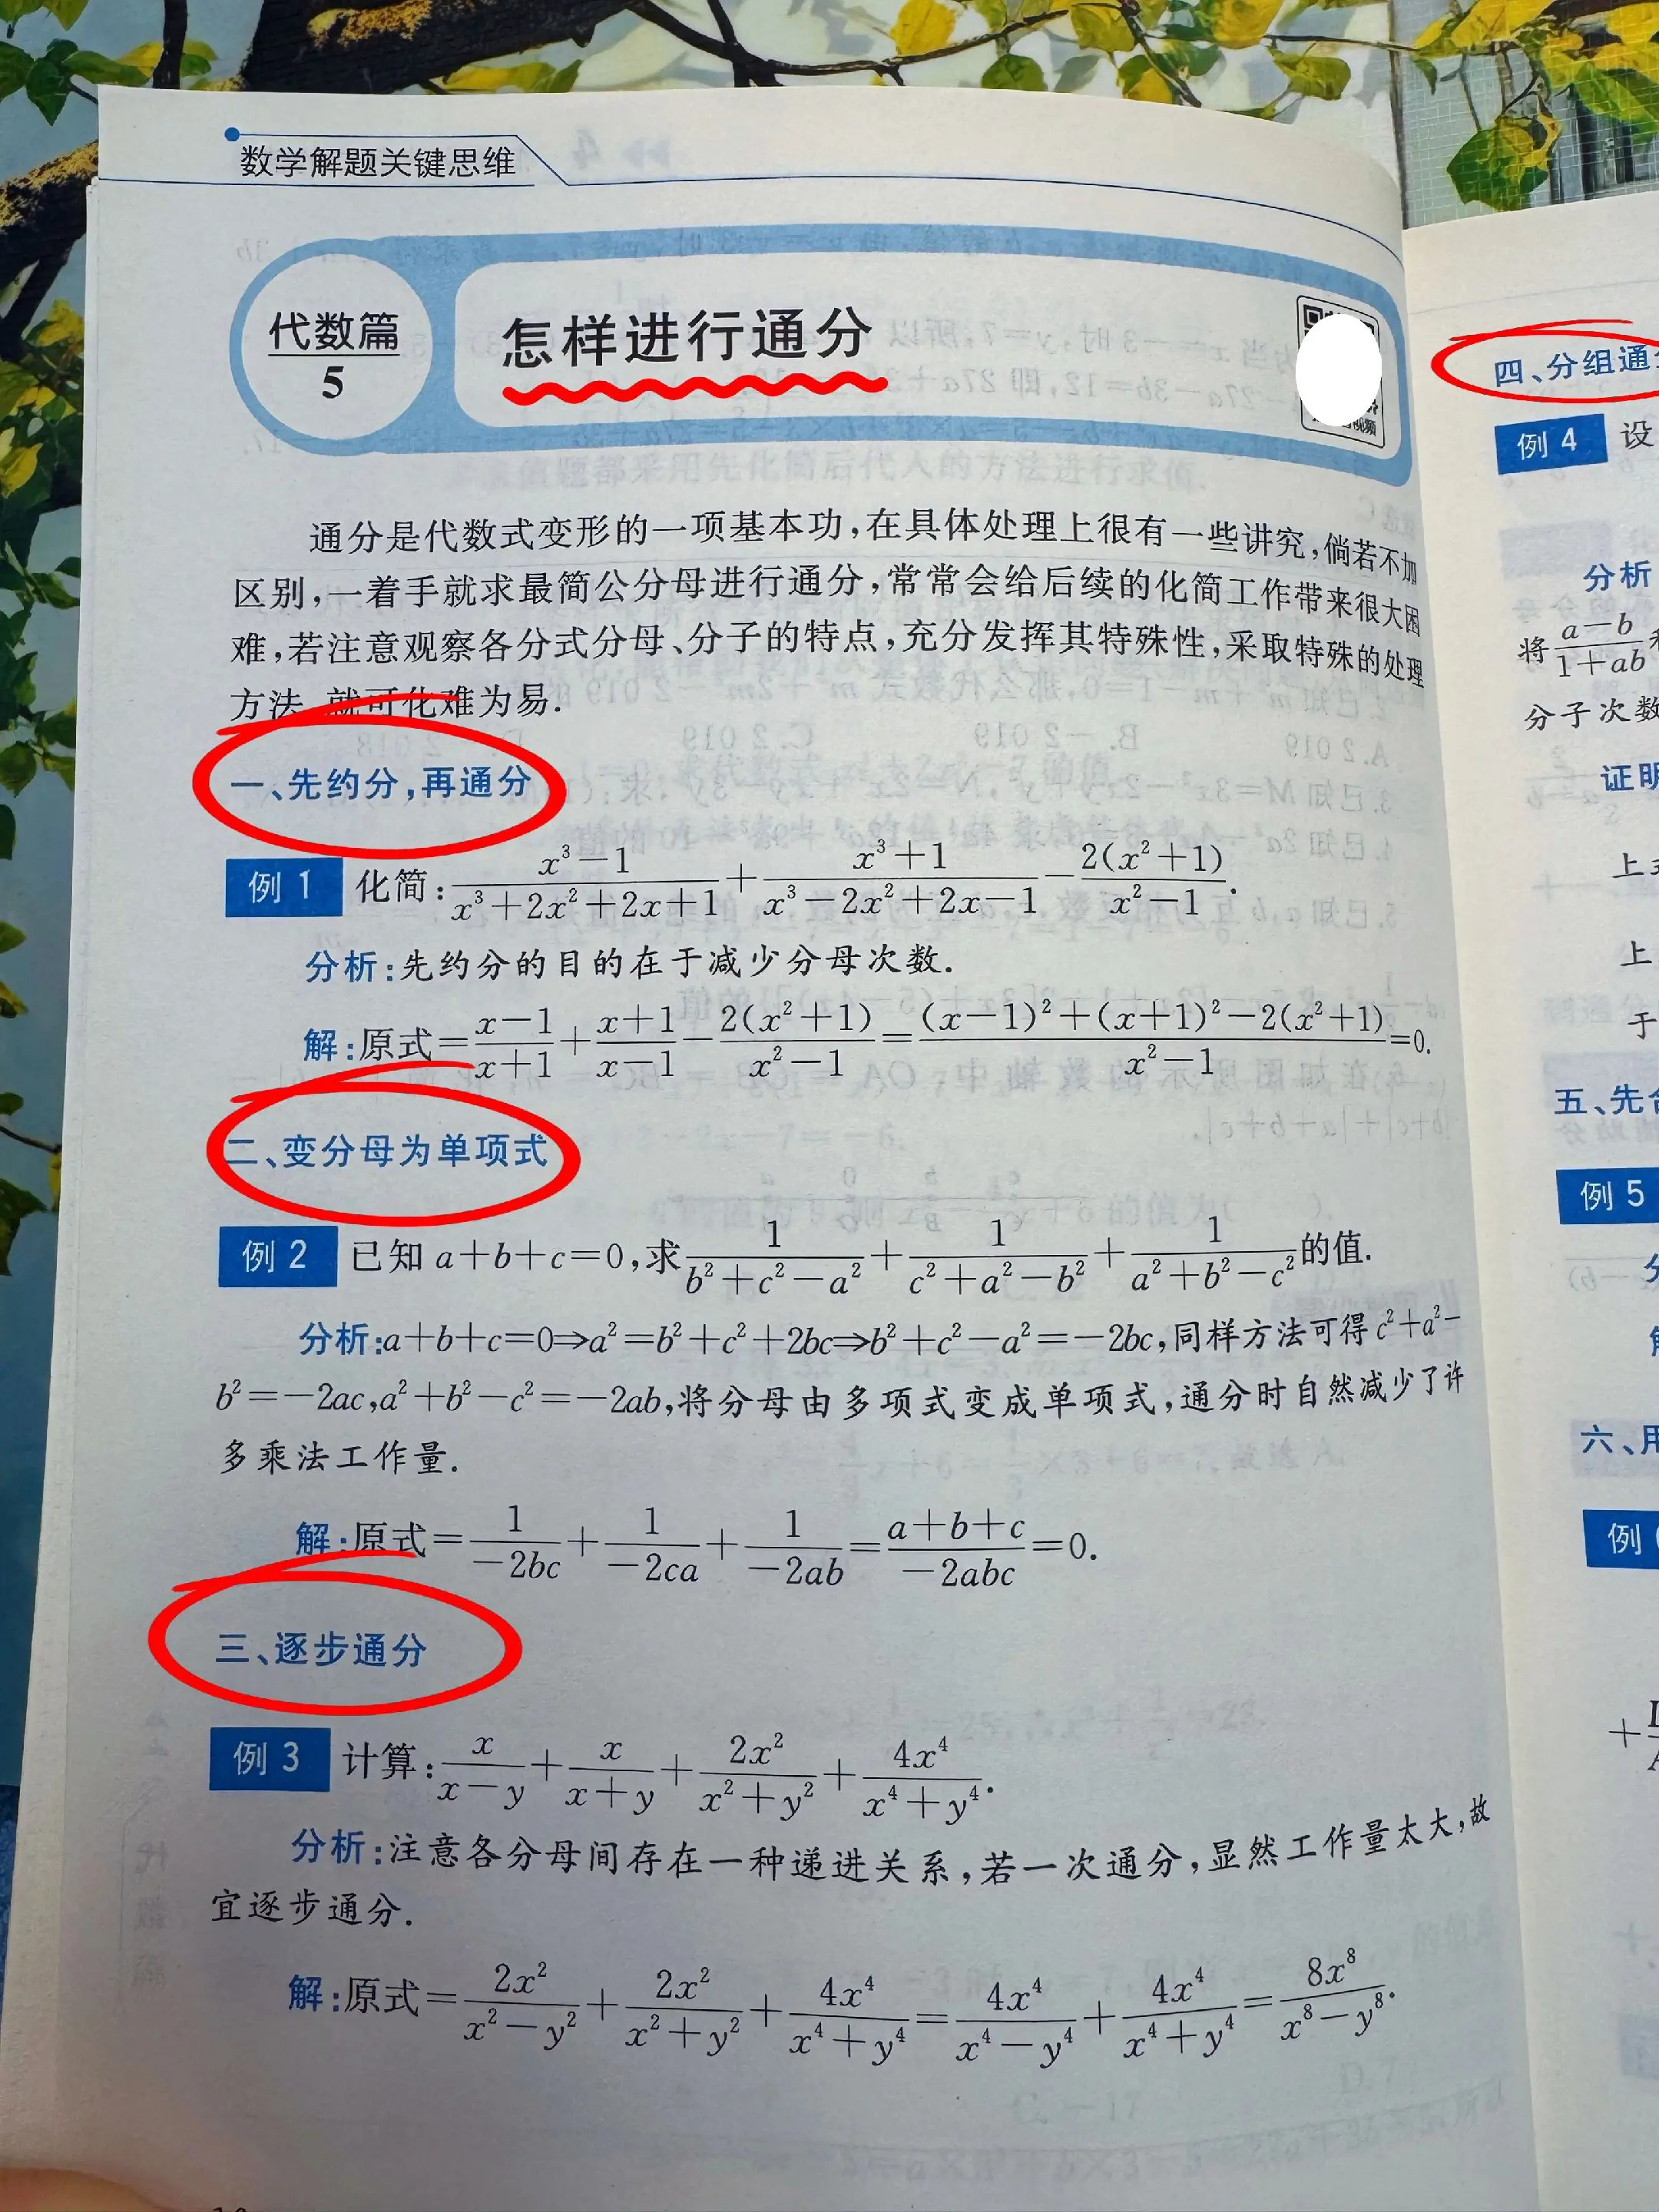 数学解题关键思维
代数篇
5
怎样进行通分
通分是代数式变形的一项基本功,在具体处理上很有一些讲究,倘若不加
区别,一着手就求最简公分母进行通分,常常会给后续的化简工作带来很大困
难,若注意观察各分式分母、分子的特点,充分发挥其特殊性,采取特殊的处理
方法,就可化难为易.
一、先约分,再通分
例 1 化简:\frac{x^3-1}{x^3+2x^2+2x+1}+\frac{x^3+1}{x^3-2x^2+2x-1}-\frac{2(x^2+1)}{x^2-1}.
分析:先约分的目的在于减少分母次数.
解:原式=\frac{x-1}{x+1}+\frac{x+1}{x-1}-\frac{2(x^2+1)}{x^2-1}=\frac{(x-1)^2+(x+1)^2-2(x^2+1)}{x^2-1}=0.
二、变分母为单项式
例 2 已知 a+b+c=0,求\frac{1}{b^2+c^2-a^2}+\frac{1}{c^2+a^2-b^2}+\frac{1}{a^2+b^2-c^2}的值.
分析:a+b+c=0⇒a^2=b^2+c^2+2bc⇒b^2+c^2-a^2=-2bc,同样方法可得 c^2+a^2-
b^2=-2ac,a^2+b^2-c^2=-2ab,将分母由多项式变成单项式,通分时自然减少了许
多乘法工作量.
解:原式=\frac{1}{-2bc}+\frac{1}{-2ca}+\frac{1}{-2ab}=\frac{a+b+c}{-2abc}=0.
三、逐步通分
例 3 计算:\frac{x}{x-y}+\frac{x}{x+y}+\frac{2x^2}{x^2+y^2}+\frac{4x^4}{x^4+y^4}.
分析:注意各分母间存在一种递进关系,若一次通分,显然工作量太大,故
宜逐步通分.
解:原式=\frac{2x^2}{x^2-y^2}+\frac{2x^2}{x^2+y^2}+\frac{4x^4}{x^4+y^4}=\frac{4x^4}{x^4-y^4}+\frac{4x^4}{x^4+y^4}=\frac{8x^8}{x^8-y^8}.
四、分组通分
例 4 设
分析
将\frac{a-b}{1+ab}
分子次数
证明
上
上
于
五、先合
例 5
六、用
例